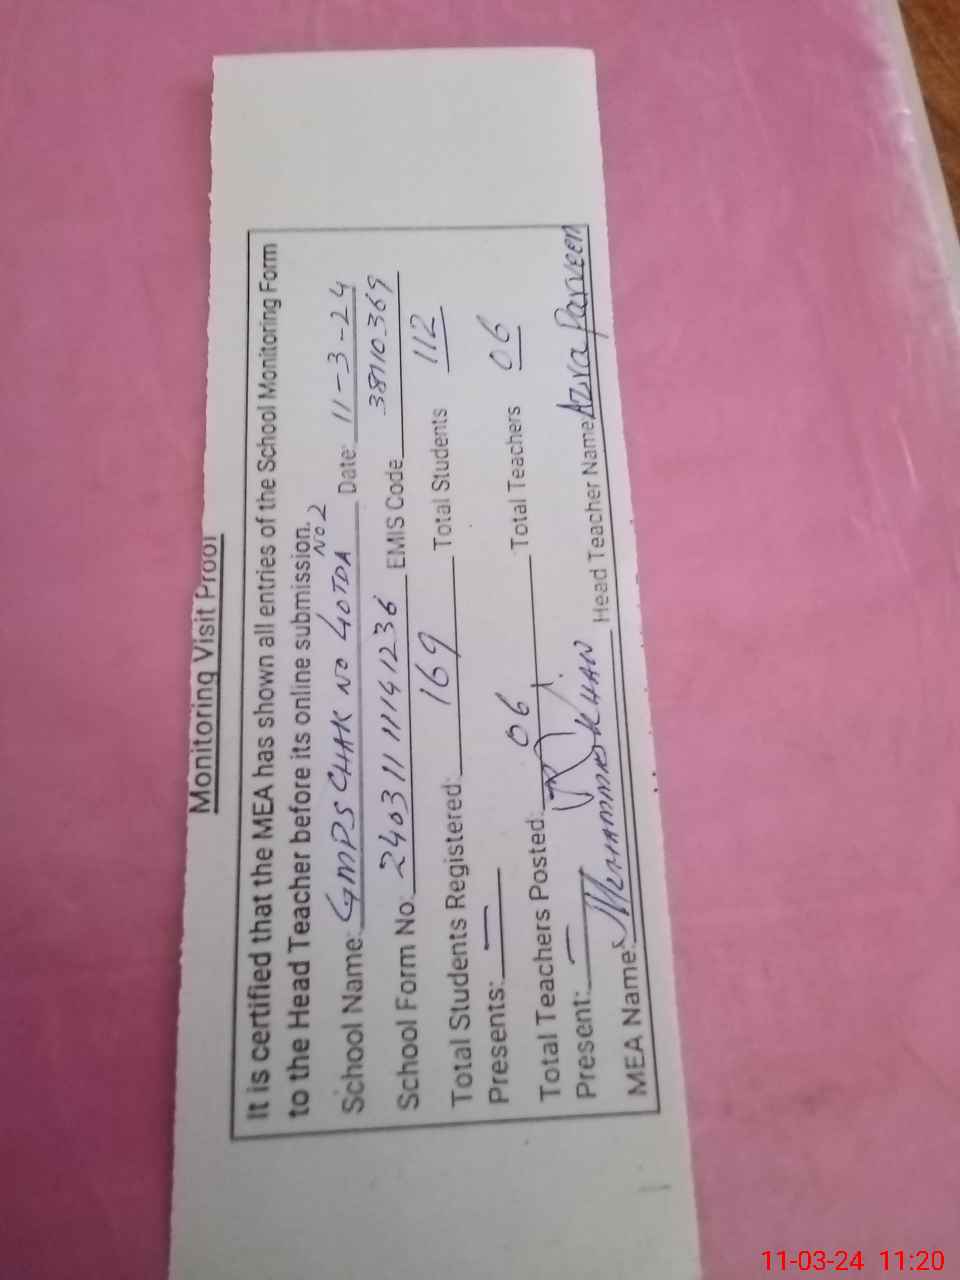 Monitoring Visit Proof
It is certified that the MEA has shown all entries of the School Monitoring Form
to the Head Teacher before its online submission.
School Name: GMPS CHAK NO 40TDA NO.2 Date: 11-3-24
School Form No: 240311111141236 EMIS Code 38110369
Total Students Registered: 169 Total Students 112
Presents: —
Total Teachers Posted: 06 Total Teachers 06
Present: —
MEA Name: MUHAMMAD KHAN Head Teacher Name Azra Parveen
11-03-24 11:20